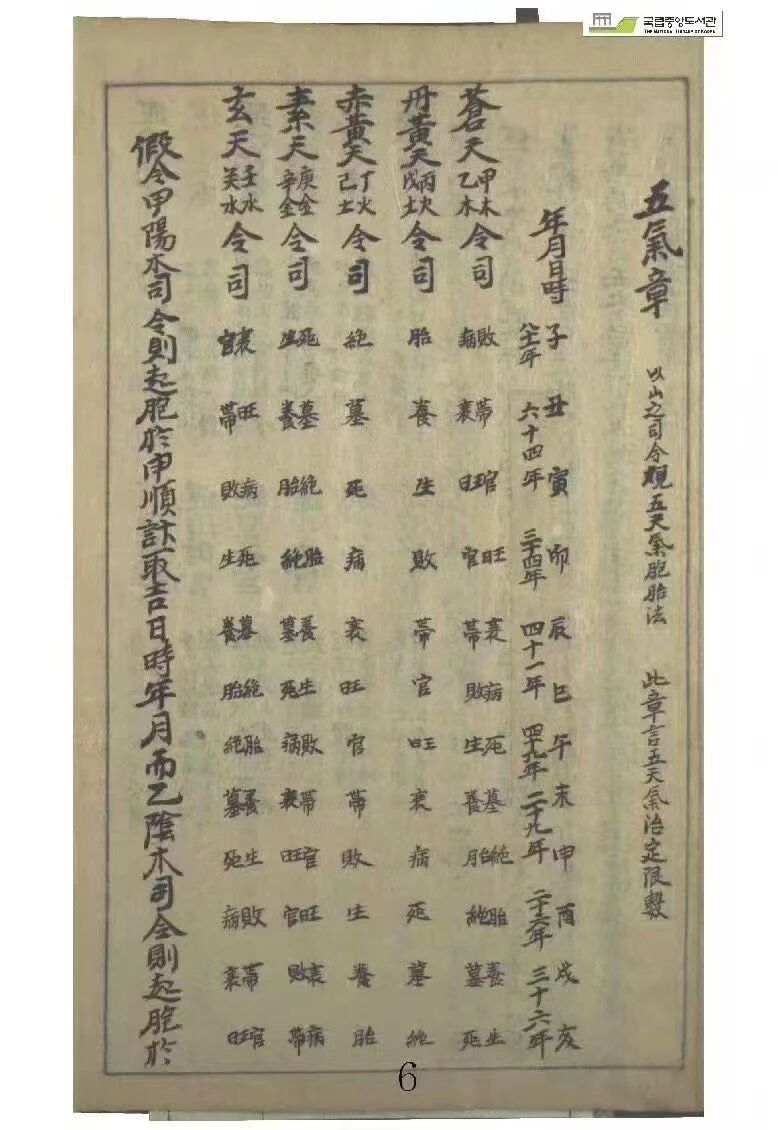 국립중앙도서관
THE NATIONAL LIBRARY OF KOREA
五氣章 以山之司令觀五天氣胞胎法 此章言五天氣治定限數
年月日時 子 丑 寅 卯 辰 巳 午 未 申 酉 戌 亥
六十四年 三十四年 四十一年 四十九年 二十九年 二十六年 三十六年
蒼天 甲木 乙木 令司 敗病 帶衰 官旺 旺官 衰帶 病敗 死生 墓養 絶胎 胎絶 養墓 生死
丹黃天 丙火 戊土 令司 胎 養 生 敗 帶 官 旺 衰 病 死 墓 絶
赤黃天 丁火 己土 令司 絶 墓 死 病 衰 旺 官 帶 敗 生 養 胎
素天 庚金 辛金 令司 死生 墓養 絶胎 胎絶 養墓 生死 敗病 帶衰 官旺 旺官 衰敗 病帶
玄天 壬水 癸水 令司 衰官 旺帶 病敗 死生 墓養 絶胎 胎絶 養墓 生死 敗病 帶衰 官旺
假令甲陽木司令則起胞於申順計取吉日時年月而乙陰木司令則起胞於
6